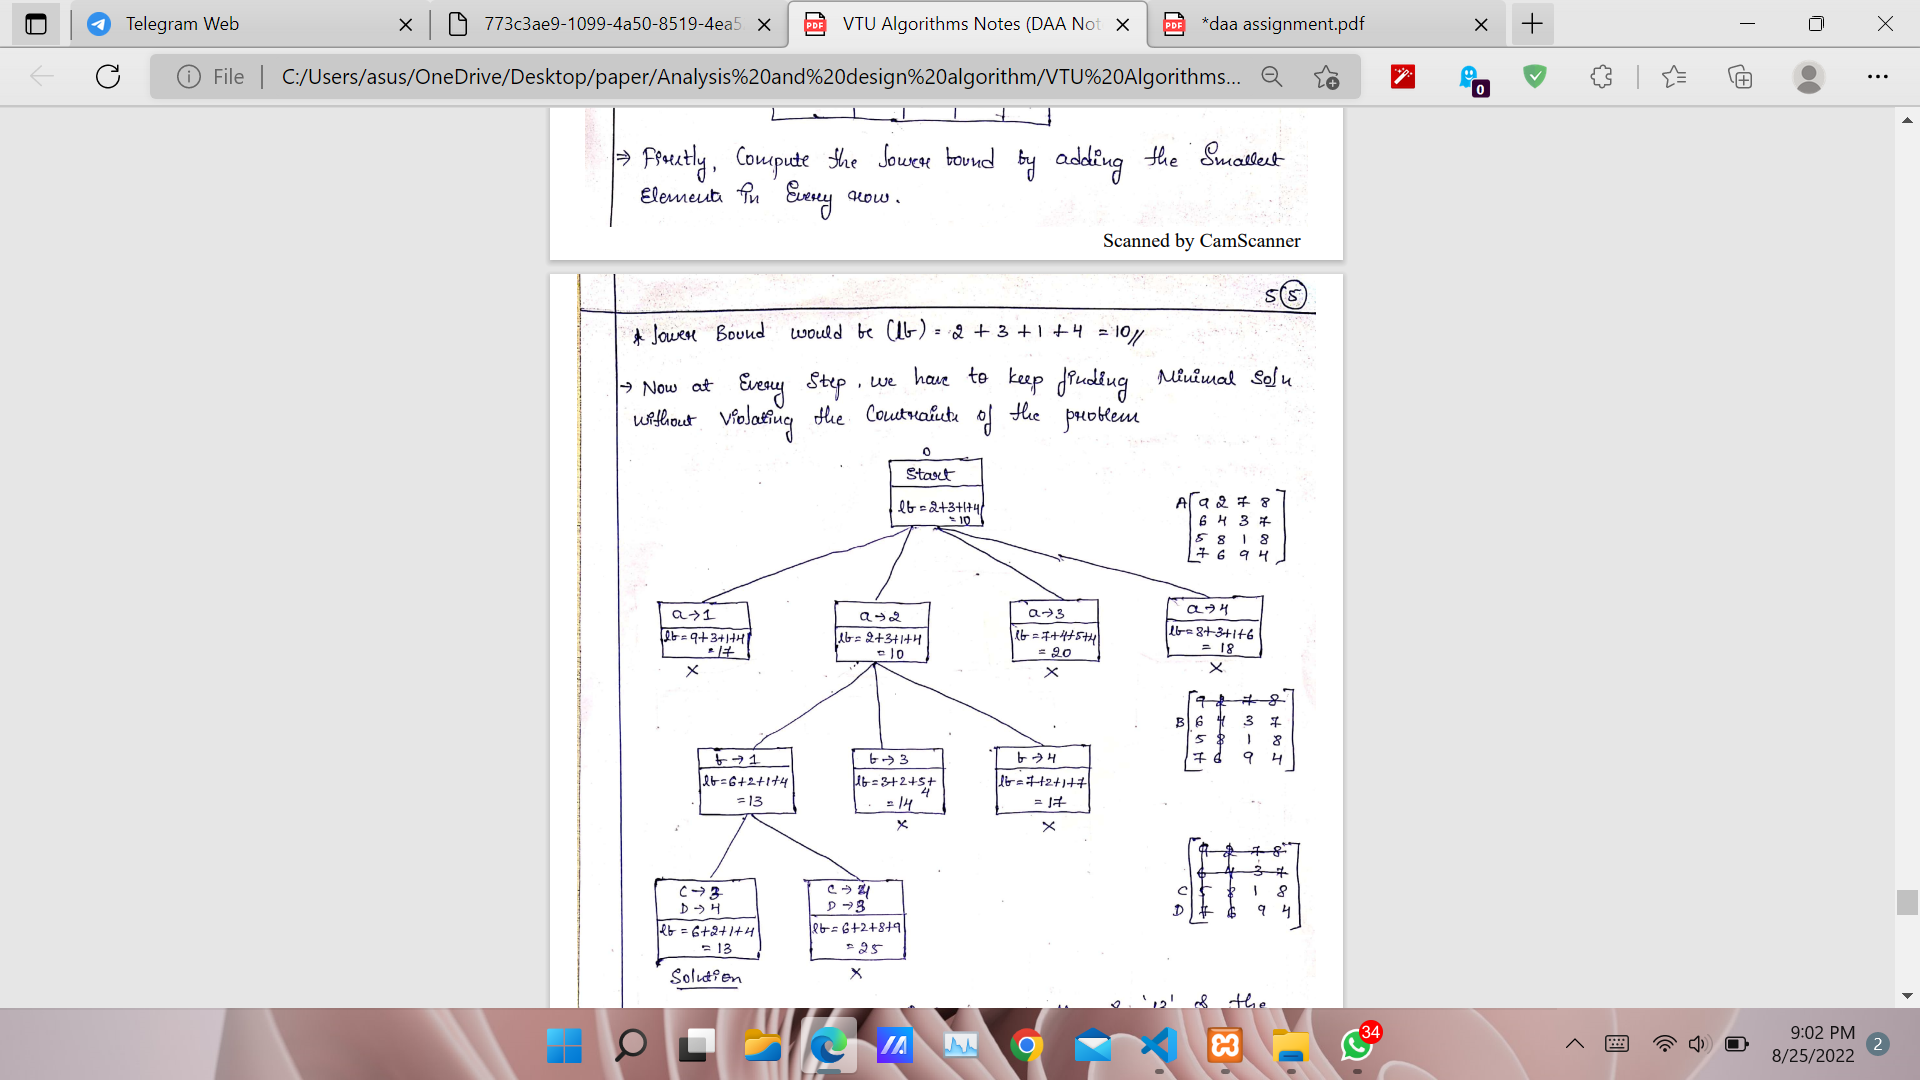 Telegram Web
773c3ae9-1099-4a50-8519-4ea5
VTU Algorithms Notes (DAA Not
*daa assignment.pdf
File
C:/Users/asus/OneDrive/Desktop/paper/Analysis%20and%20design%20algorithm/VTU%20Algorithms...
0
⇒ Firstly, Compute the lower bound by adding the Smallest
Elements in Every row.
Scanned by CamScanner
5 5
* lower Bound would be (lb) = 2 + 3 + 1 + 4 = 10//
→ Now at Every Step, we have to keep finding Minimal Soln
without Violating the Constraints of the problem
0
Start
lb = 2+3+1+4
= 10
A [9 2 7 8
6 4 3 7
5 8 1 8
7 6 9 4]
a→1
lb = 9+3+1+4
= 17
X
a→2
lb = 2+3+1+4
= 10
a→3
lb = 7+4+5+4
= 20
X
a→4
lb = 8+3+1+6
= 18
X
[9 2 7 8
B 6 4 3 7
5 8 1 8
7 6 9 4]
b→1
lb = 6+2+1+4
= 13
b→3
lb = 3+2+5+
4
= 14
X
b→4
lb = 7+2+1+7
= 17
X
[9 2 7 8
6 4 3 7
C 5 8 1 8
D 7 6 9 4]
C→3
D→4
lb = 6+2+1+4
= 13
Solution
C→4
D→3
lb = 6+2+8+9
= 25
X
'13' of the
34
9:02 PM
8/25/2022
2